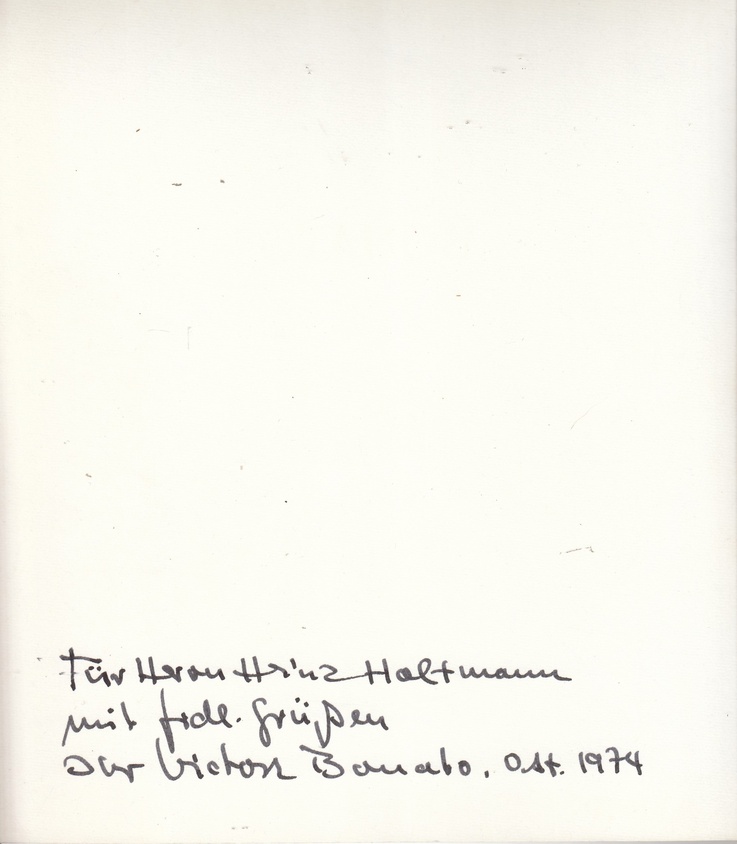 Für Herrn Heinz Holtmann
mit frdl. Grüßen
Ihr Victor Bonato, Okt. 1974